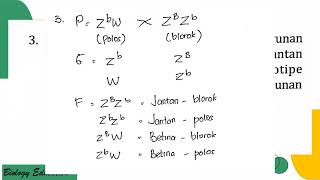 3.
3. P = Z^b W × Z^B Z^b
(polos) (blorok)
G = Z^b Z^B
W Z^b
F = Z^B Z^b = Jantan - blorok
Z^b Z^b = Jantan - polos
Z^B W = Betina - blorok
Z^b W = Betina - polos
unan
antan
otipe
unan
Biology Ed